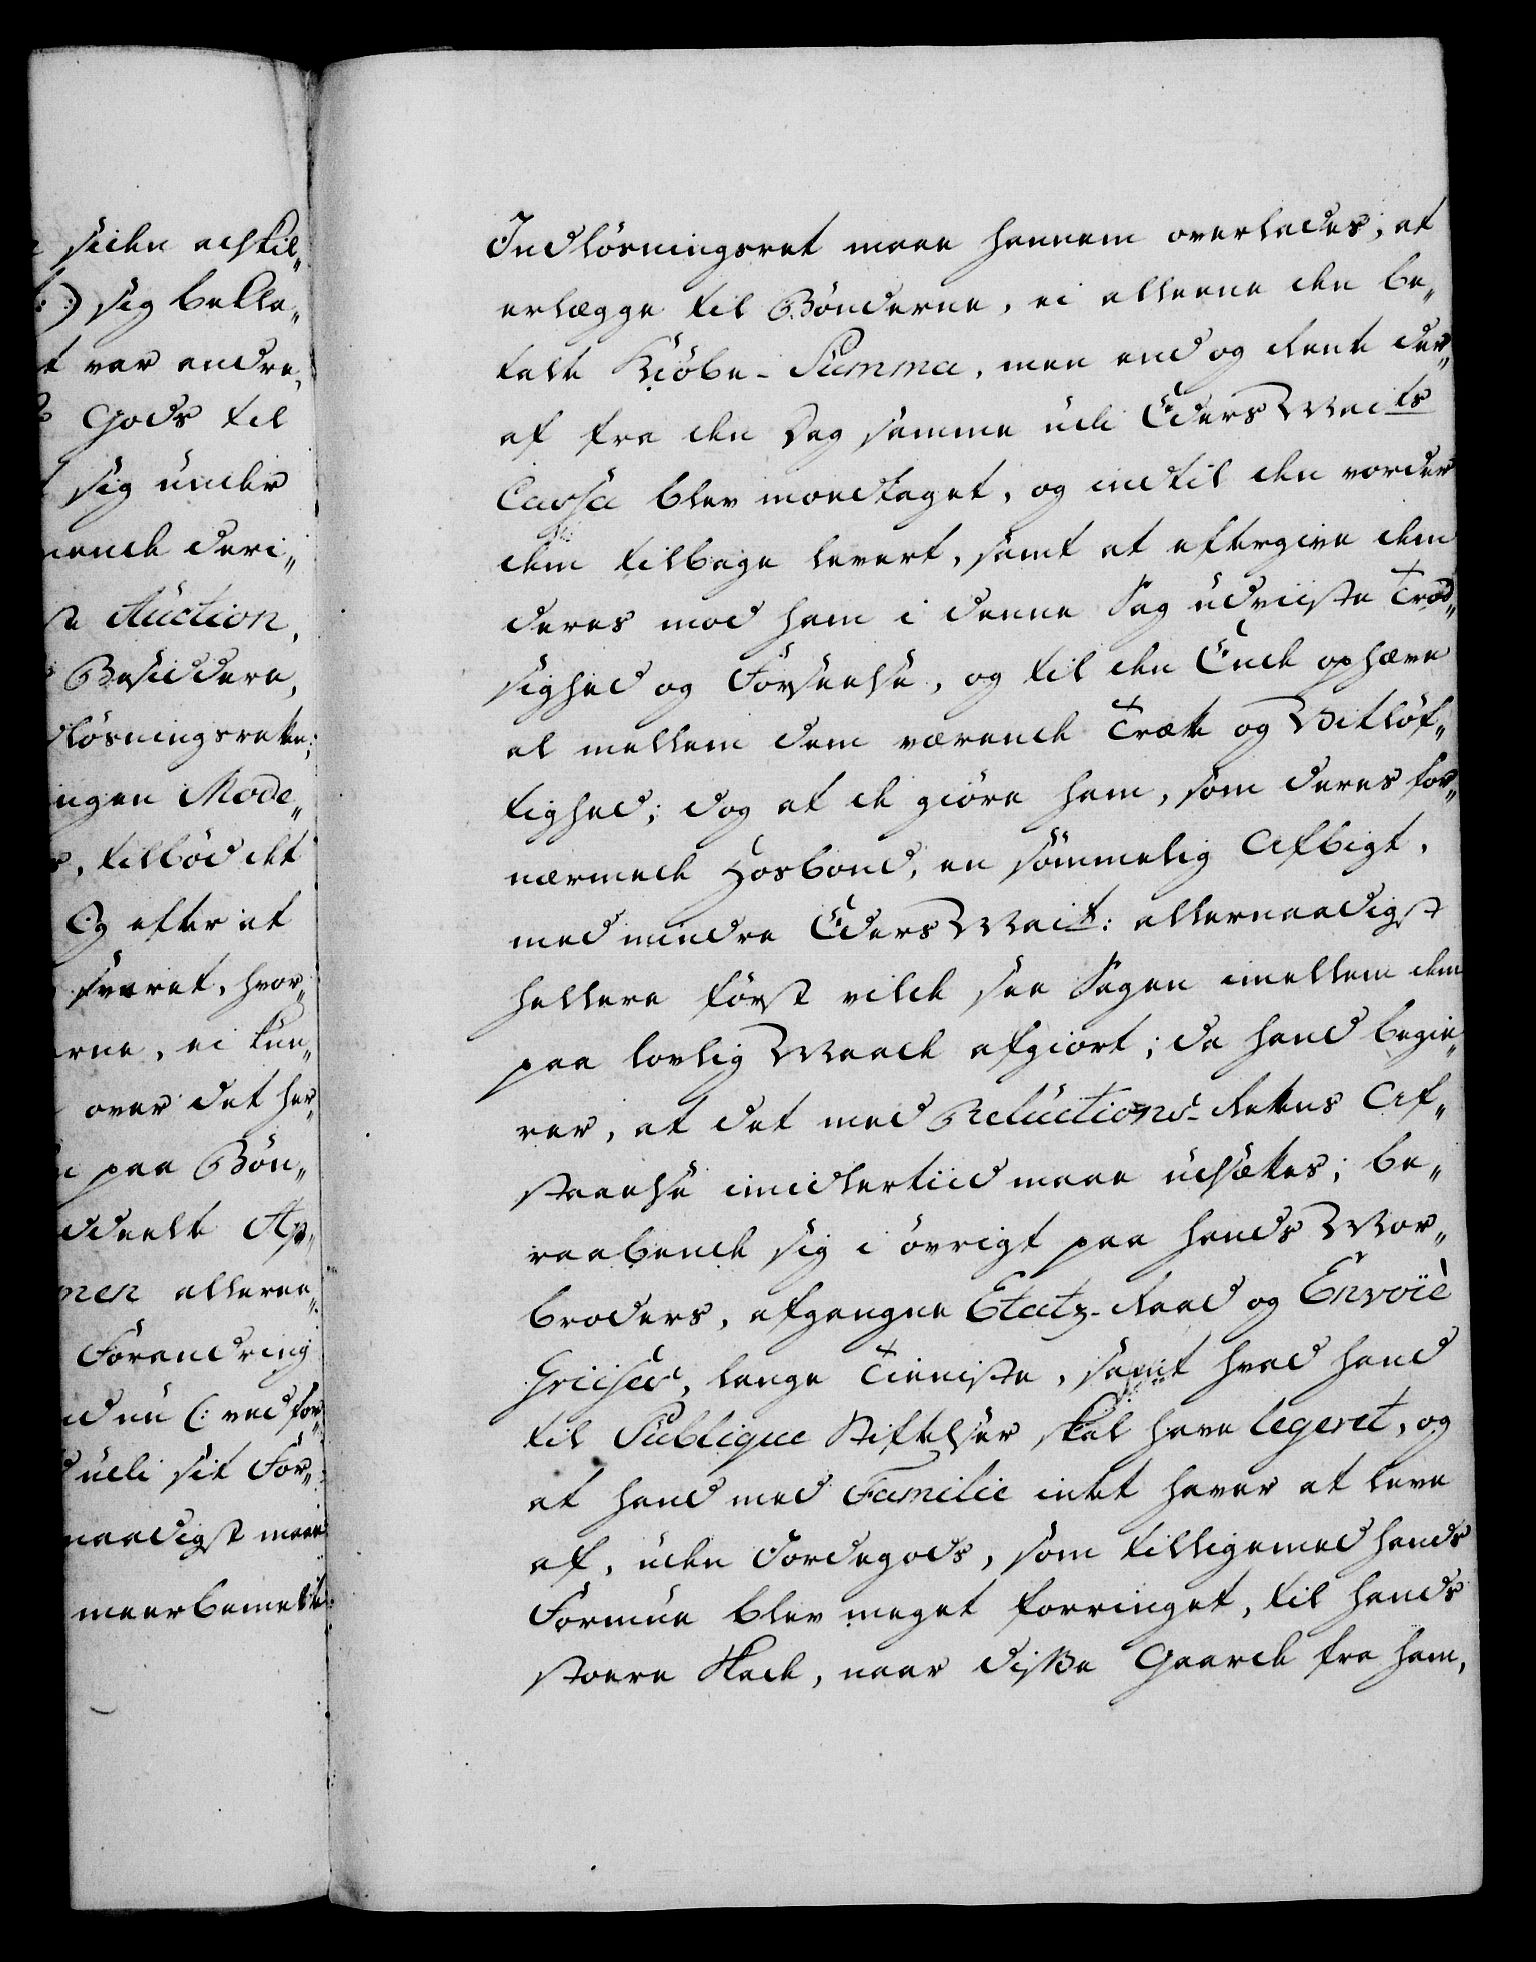 siden adskil„
:) sig bekla„
t var andre,
Gods til
sig under
nende deri„
Auction,
Besiddere,
dlösningsrette;
ingen Mode„
tilböd det
Og efter at
svaret, hvor„
rne, ei kun„
over det her„
paa Bön„
ddeelt Ap„
men allerna„
Forandring
nu (: ved for„
udi sit For„
naadigst maae
meerbemelte
Indlösningsret maae hannem overlades; at
erlægge til Bönderne, ei alleene den be„
talte Kiöbe-Summa, men end og Rente der„
af fra den Dag samme udi Eders Maits
Cassa blev modtaget, og indtil den vorder
dem tilbage levert, samt at eftergive dem
deres mod ham i denne Sag udviiste Trod„
sighed og Forseelse, og til den Ende ophæve
al mellem dem værende Trætte og Vitlöf„
tighed; dog at de giöre ham, som deres for„
nærmede Hosbond, en sömmelig Afbigt,
med mindre Eders Mait: allernaadigst
hellere först vilde see Sagen imellem dem
paa lovlig Maade afgiort; da hand begie„
rer, at det med Reluctions-Rettens Af„
staaelse imidlertiid maae udsættes; be„
raabende sig i övrigt paa hands Mor„
broders, afgangne Etatz-Raad og Envoiè
Griises, lange Tieniste, samt hvad hand
til Publique Stiftelser skal have legeret, og
at hand med Familie intet haver at leve
af, uden Jordegods, som tilligemed hands
Formue blev meget forringet, til hands
stoere Skade, naar disse Gaarde fra ham,